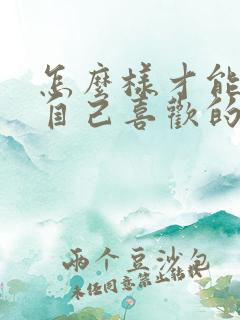 怎麼樣才能
自己喜歡的
兩个豆沙包
未经同意禁止转载